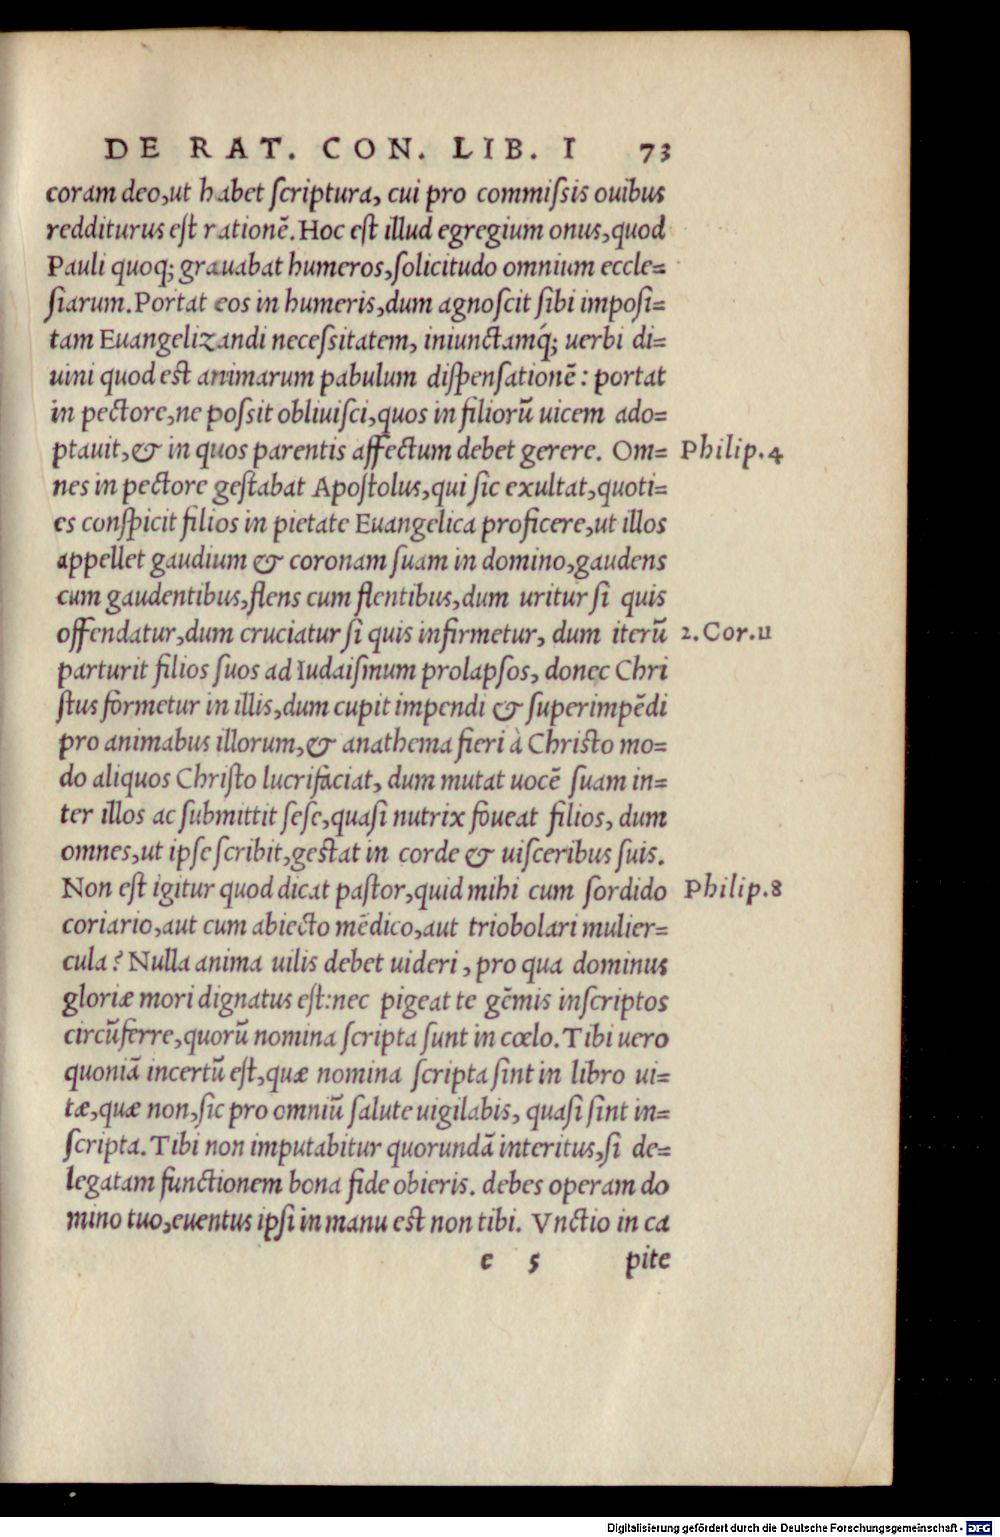 DE RAT. CON. LIB. I 73
coram deo,ut habet ſcriptura, cui pro commiſsis ouibus
redditurus eſt rationẽ. Hoc eſt illud egregium onus,quod
Pauli quoq; grauabat humeros,ſolicitudo omnium eccle=
ſiarum. Portat eos in humeris,dum agnoſcit ſibi impoſi=
tam Euangelizandi neceſsitatem, iniunctamq́; uerbi di=
uini quod est animarum pabulum diſpenſationẽ: portat
in pectore,ne poſsit obliuiſci,quos in filiorũ uicem ado=
ptauit,& in quos parentis affectum debet gerere. Om= Philip.4
nes in pectore geſtabat Apoſtolus,qui ſic exultat,quoti=
es conſpicit filios in pietate Euangelica proficere,ut illos
appellet gaudium & coronam ſuam in domino,gaudens
cum gaudentibus,flens cum flentibus,dum uritur ſi quis
offendatur,dum cruciatur ſi quis infirmetur, dum iterũ 2.Cor.11
parturit filios ſuos ad Iudaiſmum prolapſos, donec Chri
ſtus formetur in illis,dum cupit impendi & ſuperimpẽdi
pro animabus illorum,& anathema fieri à Christo mo=
do aliquos Chriſto lucrifaciat, dum mutat uocẽ ſuam in=
ter illos ac ſubmittit ſeſe,quaſi nutrix foueat filios, dum
omnes,ut ipſe ſcribit,gestat in corde & uiſceribus ſuis.
Non eſt igitur quod dicat paſtor,quid mihi cum ſordido Philip.8
coriario,aut cum abiecto mẽdico,aut triobolari mulier=
cula? Nulla anima uilis debet uideri, pro qua dominus
gloriæ mori dignatus eſt:nec pigeat te gẽmis inſcriptos
circũferre,quorũ nomina ſcripta ſunt in cœlo. Tibi uero
quoniã incertũ eſt,quæ nomina ſcripta ſint in libro ui=
tæ,quæ non,ſic pro omniũ ſalute uigilabis, quaſi ſint in=
ſcripta. Tibi non imputabitur quorundã interitus,ſi de=
legatam functionem bona fide obieris. debes operam do
mino tuo,euentus ipſi in manu est non tibi. Vnctio in ca
e 5 pite
Digitalisierung gefördert durch die Deutsche Forschungsgemeinschaft - DFG